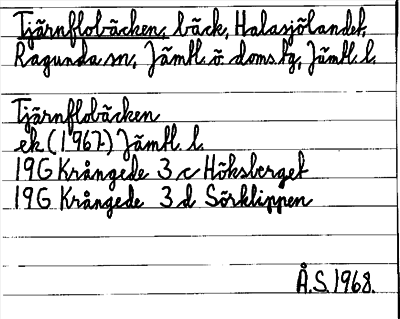 Tjärnflobäcken, bäck, Halasjölandet,
Ragunda sn, Jämtl. ö doms tg, Jämtl. l.
Tjärnflobäcken
ek (1967) Jämtl. l.
19G Krångede 3 c Höksberget
19G Krångede 3 d Sörklippen
Å.S. 1968.